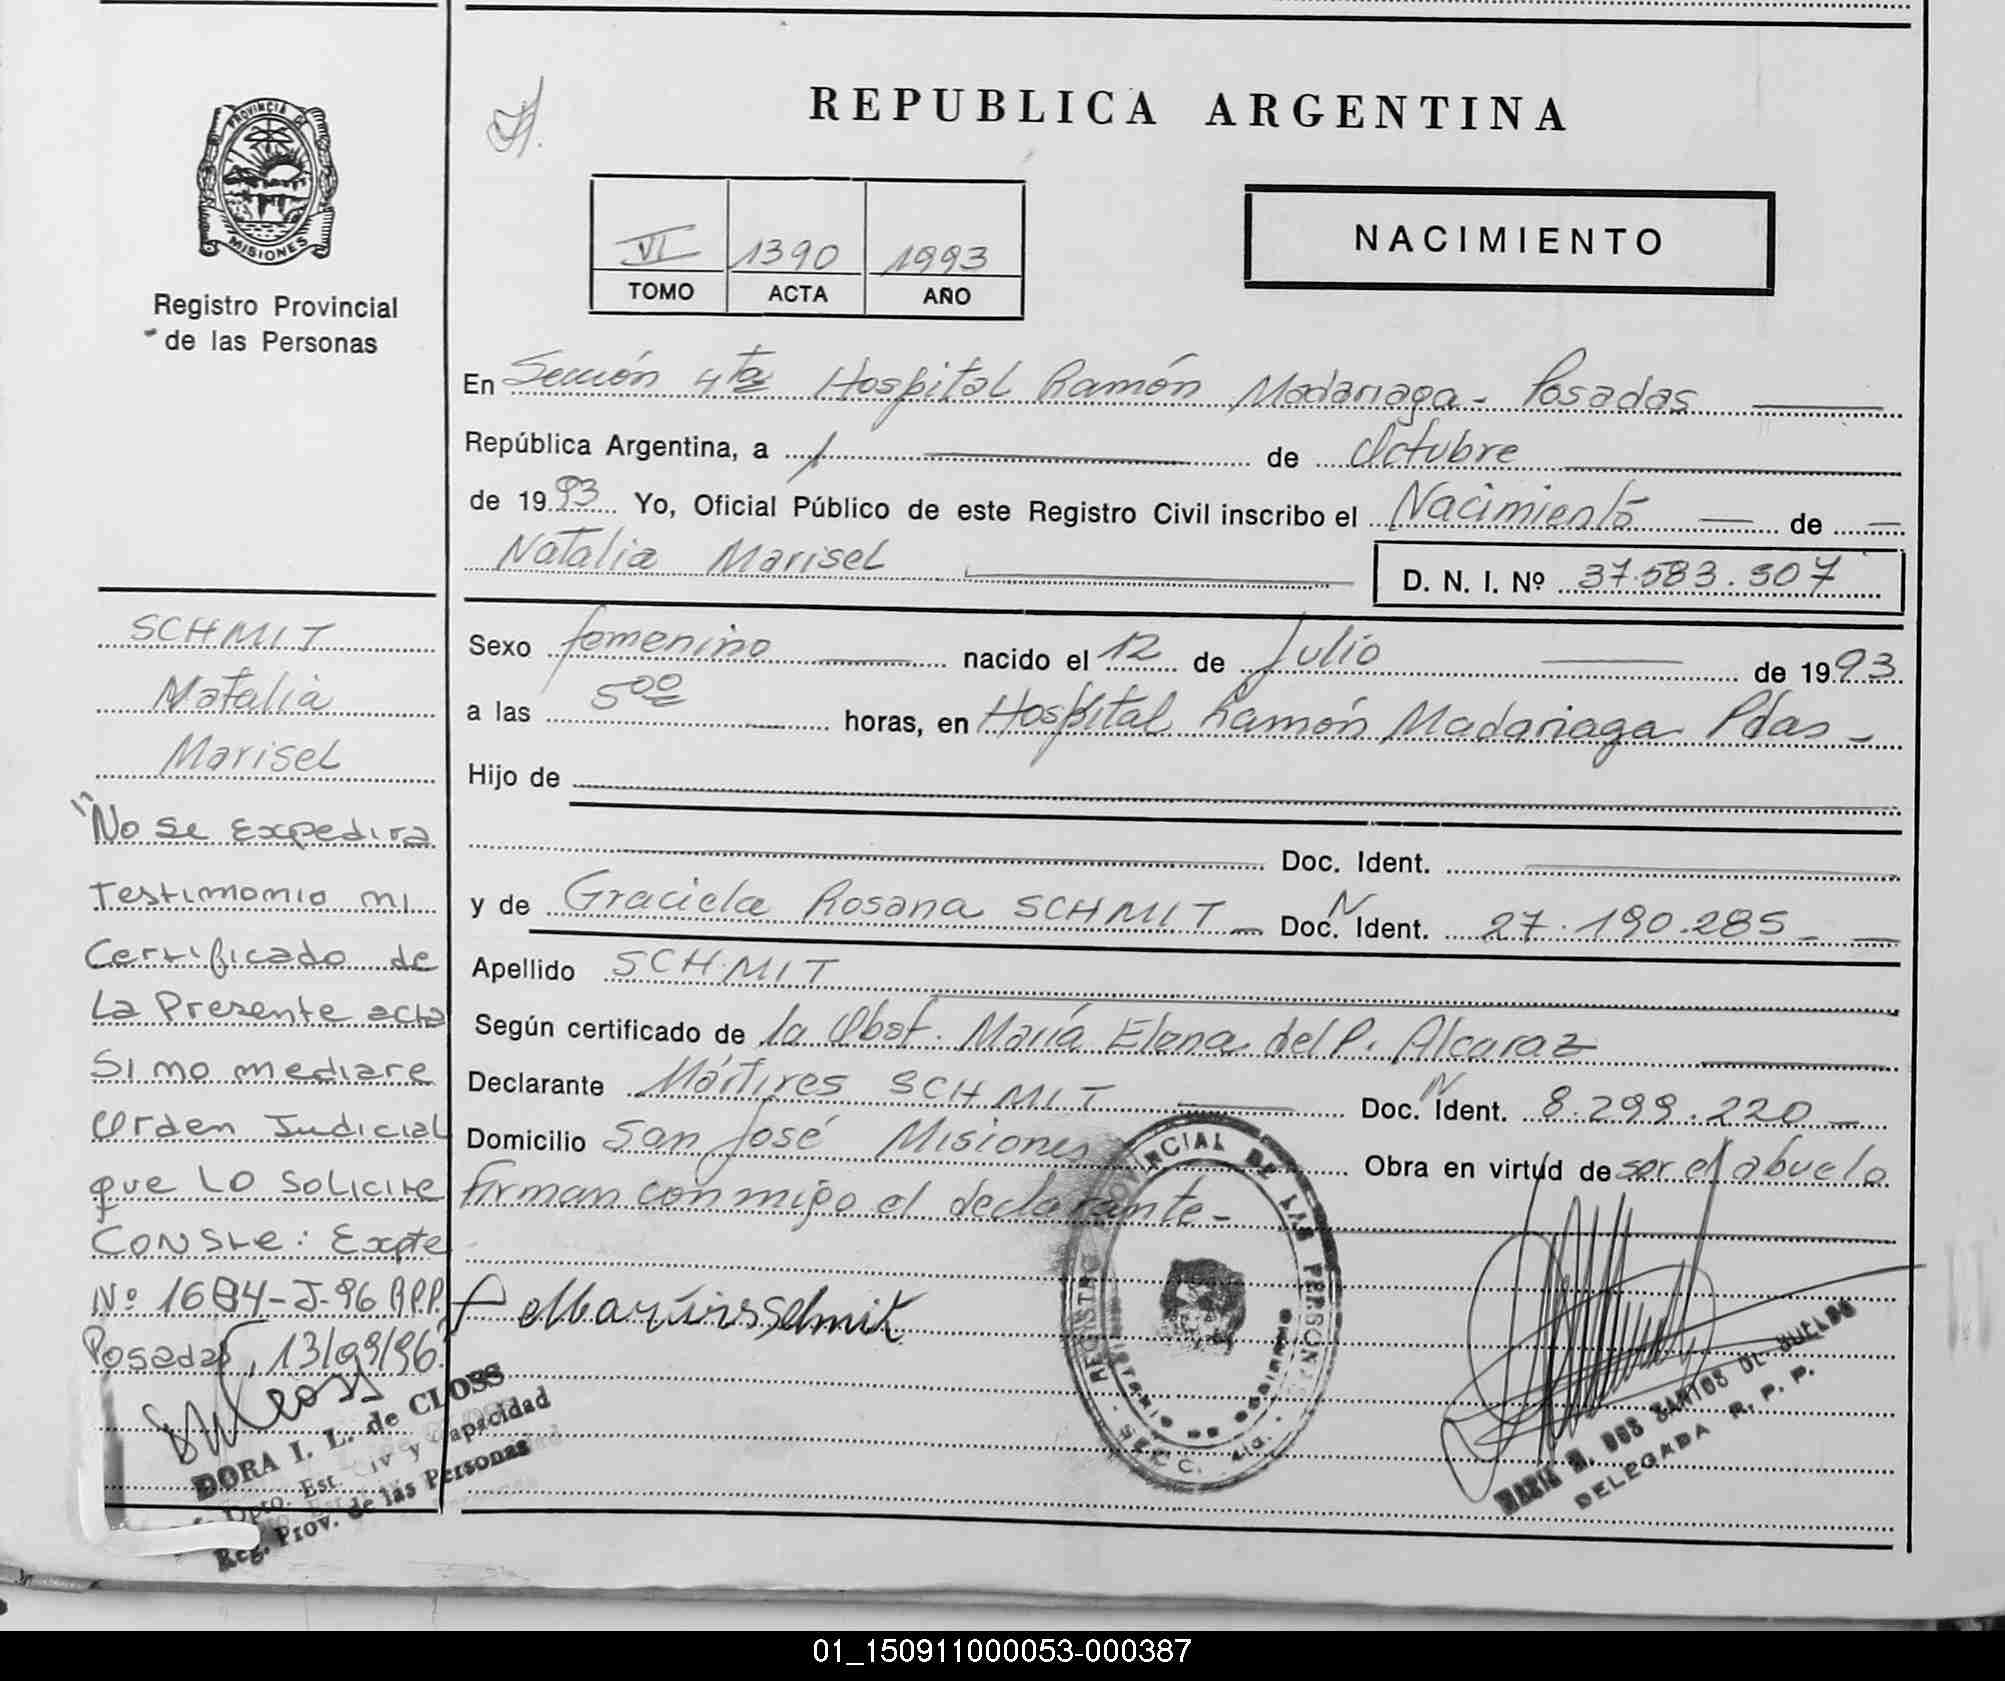 PROVINCIA DE
MISIONES
Registro Provincial
de las Personas
REPUBLICA ARGENTINA
VI 1390 1993
TOMO ACTA AÑO
NACIMIENTO
En Sección 4ta Hospital Ramón Madariaga - Posadas
República Argentina, a 1 de Octubre
de 1993 Yo, Oficial Público de este Registro Civil inscribo el Nacimiento de
Natalia Marisel
D. N. I. Nº 37.583.507
Sexo femenino nacido el 12 de Julio de 1993
a las 5 00 horas, en Hospital Ramón Madariaga Pdas -
Hijo de
Doc. Ident.
y de Graciela Rosana SCHMIT Doc. N Ident. 27.190.285
Apellido SCHMIT
Según certificado de la Obst. María Elena del P. Alcaraz
Declarante Mártires SCHMIT Doc. N Ident. 8.299.220
Domicilio San José Misiones Obra en virtud de ser el abuelo
Firman conmigo el declarante -
SCHMIT
Natalia
Marisel
"No se Expedira
Testimonio ni
Certificado de
La Presente acta
Si no mediare
Orden Judicial
que Lo solicite
CONSTE: Expte
Nº 1684-J-96 R.P.P.
Posadas, 13/09/96.
DORA I. L. de CLOSS
Dpto. Est. Civ y Capacidad
Reg. Prov. de las Personas
REGISTRO PROVINCIAL DE LAS PERSONAS
SECC. 4ta.
MARIA M. DOS SANTOS DE SUELDO
DELEGADA R. P. P.
01_150911000053-000387